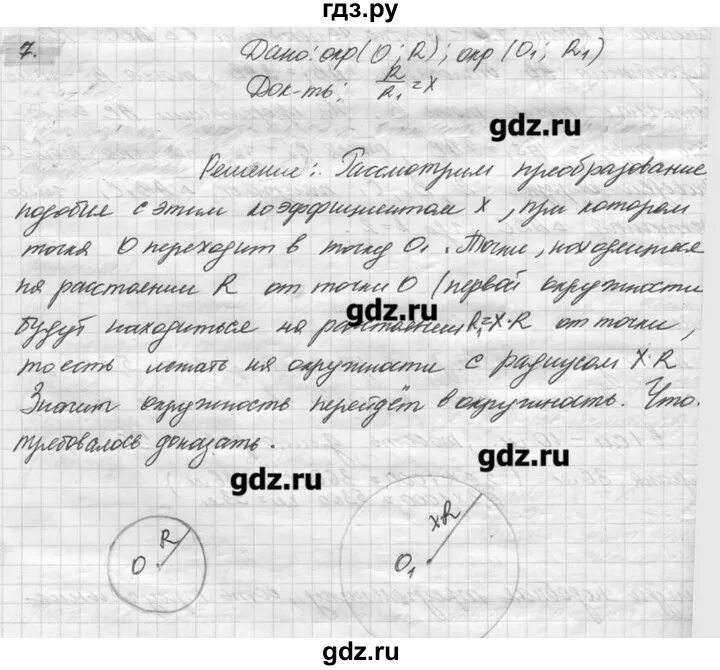 гдз.ру
7.
Дано: окр(О; R); окр(О₁; R₁)
Док-ть: R/R₁ = X
gdz.ru
Решение: Рассмотрим преобразование
подобия с этим коэффициентом X, при котором
точка О переходит в точку О₁. Точки, находящиеся
на расстоянии R от точки О (первой окружности
gdz.ru
будут находиться на расстоянии R₁=X·R от точки,
то есть лежать на окружности с радиусом X·R
Значит окружность перейдёт в окружность. Что
требовалось доказать.
gdz.ru
gdz.ru
O R
O₁ X·R
гдз.ру